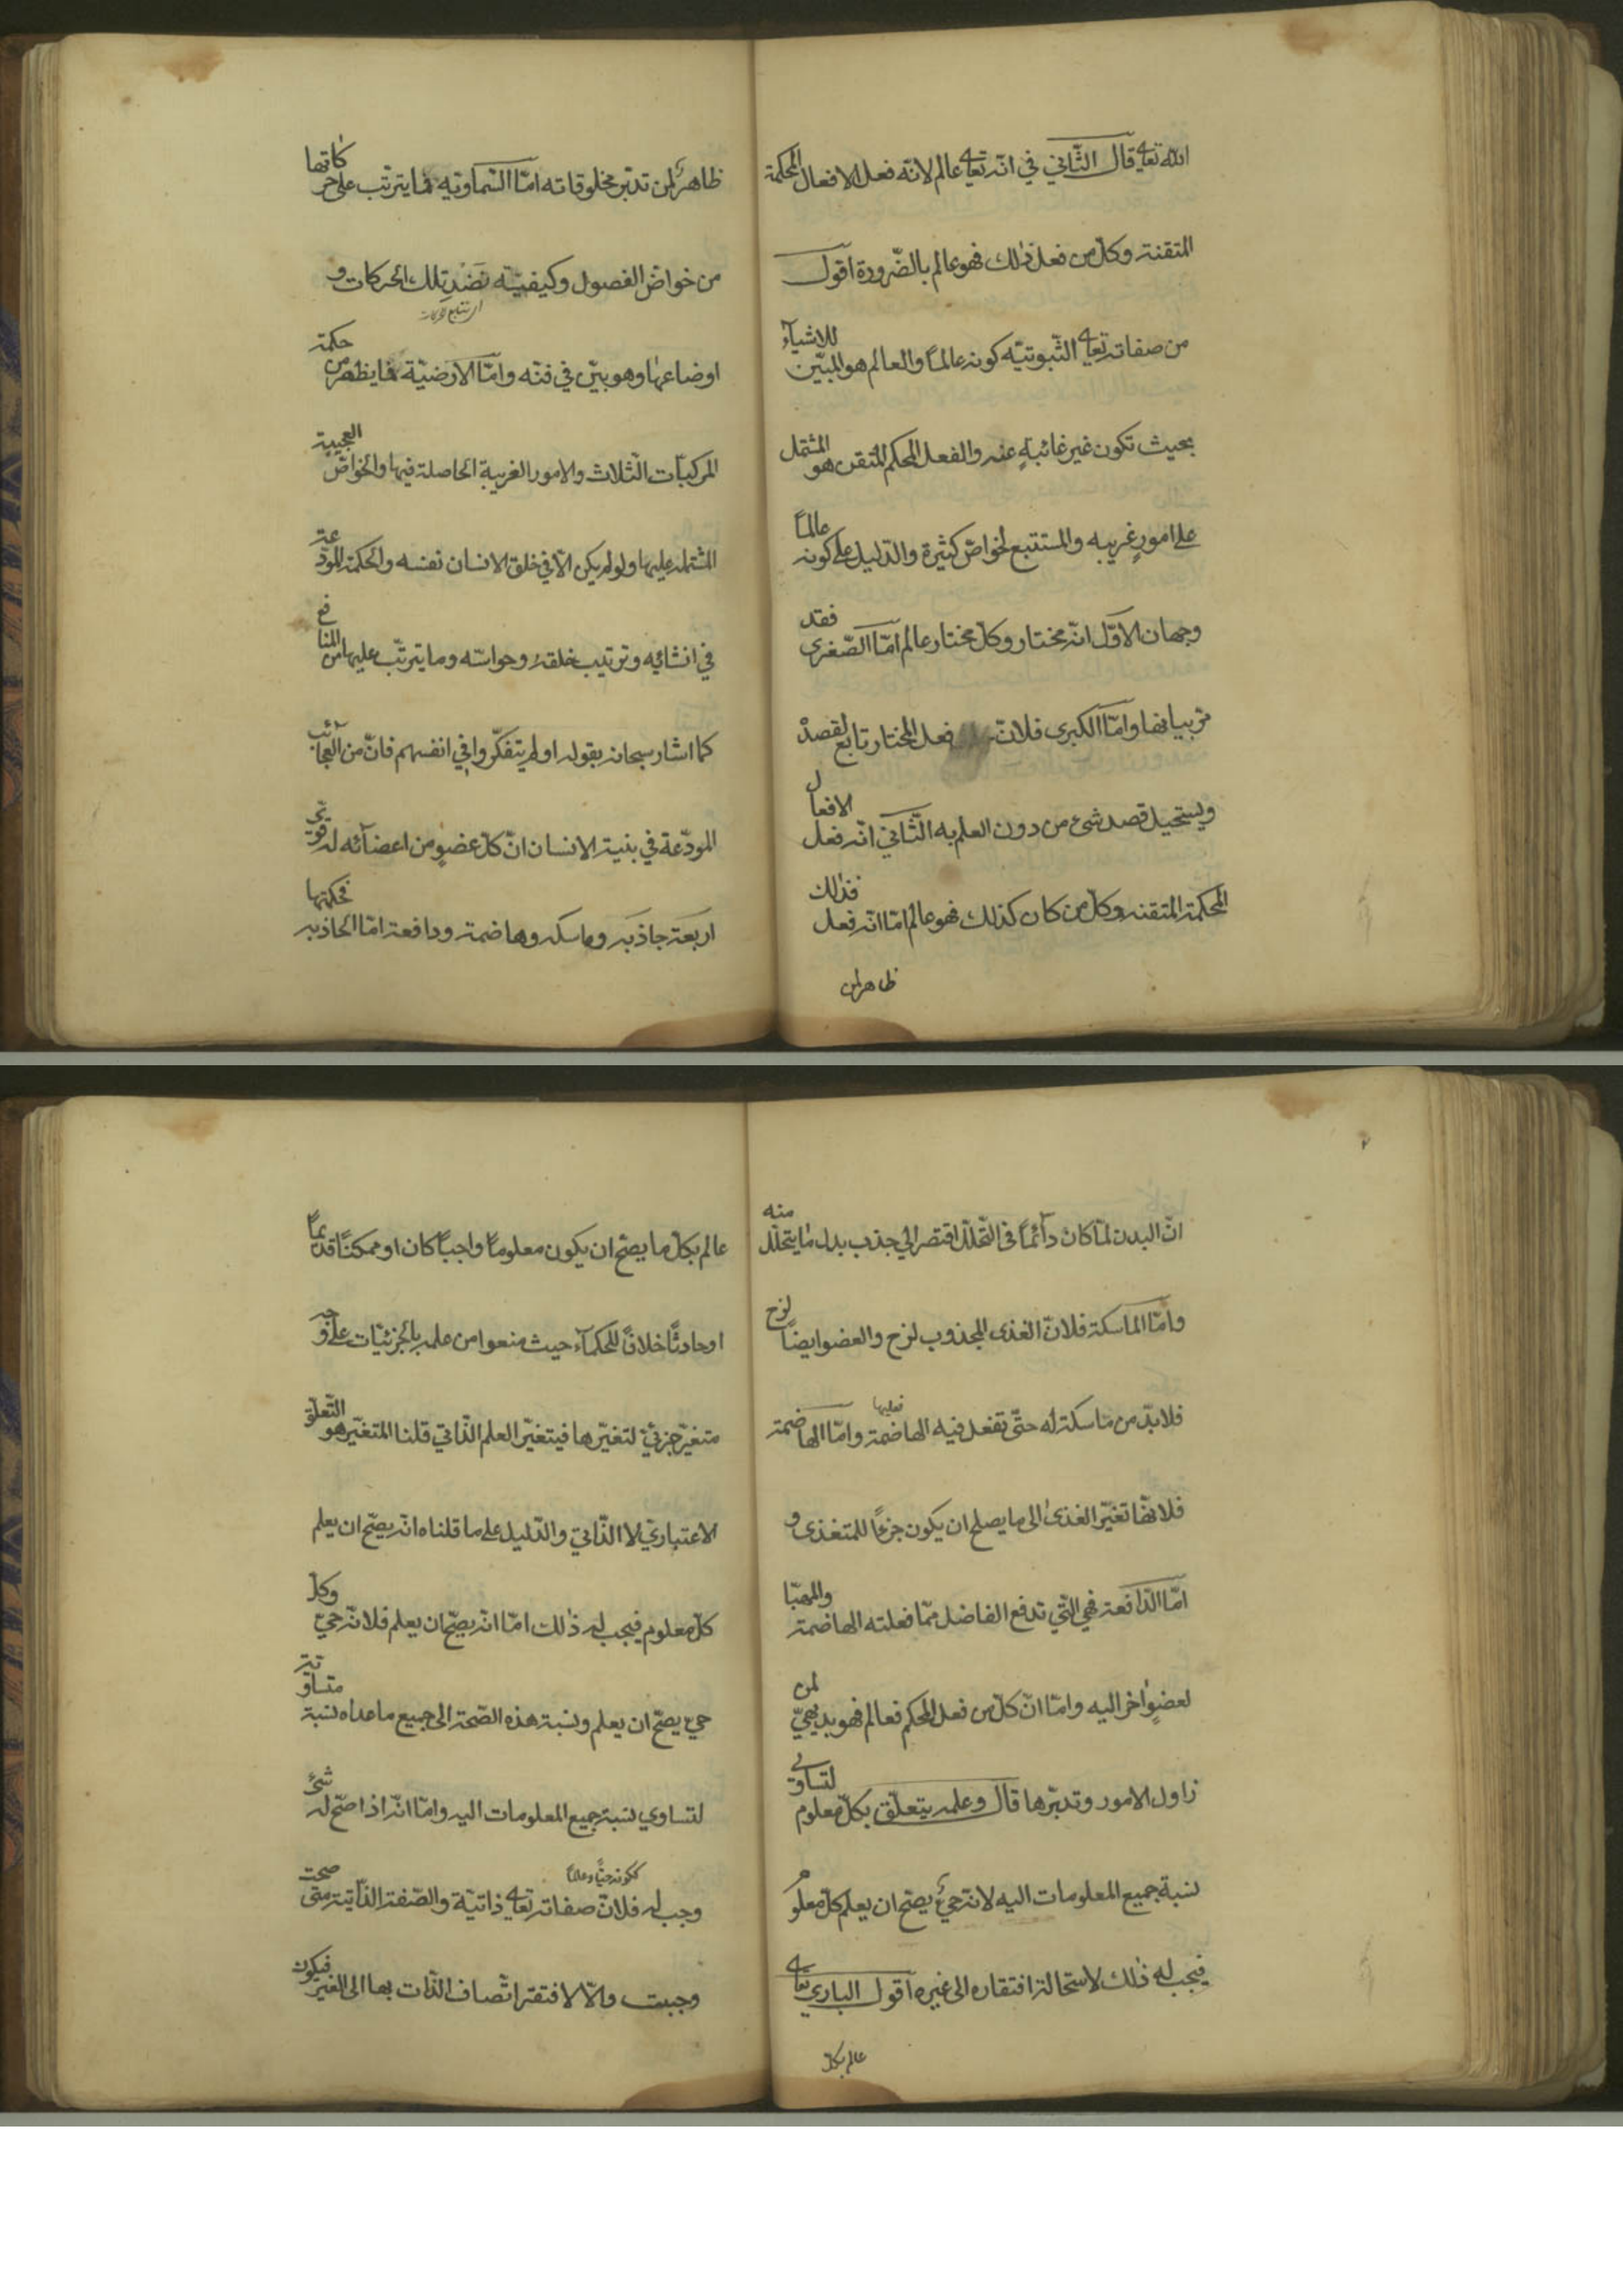 الله تعالى قال الثّاني في انّه تعالى عالم لانّه فعل الافعال المحكمة
المتقنة وكلّ من فعل ذلك فهو عالم بالضّرورة اقول
من صفاته تعالى الثّبوتيّه كونه عالماً والعالم هو المبيّن للاشيآء
بحيث تكون غير غائبةٍ عنه والفعل المحكم المتقن هو المشتمل
على امورٍ غريبه والمستتبع لخواصّ كثيرة والدّليل على كونه عالماً
وجهان الاوّل انّه مختار وكلّ مختار عالم امّا الصّغرى فقد
مرّ بيانها وامّا الكبرى فلانّ فعل المختار تابع لقصده
ويستحيل قصد شئ من دون العلم به الثّاني انّه فعل الافعال
المحكمة المتقنه وكلّ من كان كذلك فهو عالم امّا انّه فعل فذلك
ظاهر لمن
ظاهرٌ لمن تدبّر مخلوقاته امّا السّماويّه فما يترتّب على حركاتها
من خواصّ الفصول وكيفيّته نضد تلك الحركات و
اوضاعها وهو بيّن في فنّه وامّا الارضيّة فما يظهر من حكمة
المركبّات الثّلاث والامور الغريبة الحاصلة فيها والخواصّ العجيبة
المشتمله عليها ولو لم يكن الّا في خلق الانسان نفسه والحكمة المودّعة
في انشائه وترتيب خلقه وحواسّه وما يترتّب عليها من المنافع
كما اشار سبحانه بقوله اولم يتفكّروا في انفسهم فانّ من العجآئب
المودّعة في بنية الانسان انّ كلّ عضوٍ من اعضآئه له قوى
اربعة جاذبه وماسكه وهاضمة ودافعة امّا الجاذبه فحكمتها
انّ البدن لمّا كان دآئماً في التّحلّل افتقر الى جذب بدل ما يتحلّل منه
وامّا الماسكة فلانّ الغذى المجذوب لزج والعضو ايضاً لزج
فلابدّ من ماسكة له حتّى تفعل فيه الهاضمة فعليها وامّا الهاضمة
فلانّها تغيّر الغذى الى ما يصلح ان يكون جزءًا للمتغذى و
امّا الدّافعة فهي الّتي تدفع الفاضل ممّا فعلته الهاضمة والمهيّا
لعضوٍ اخر اليه وامّا انّ كلّ من فعل المحكم فعالم فهو بديهيّ لمن
زاول الامور وتدبّرها قال وعلمه يتعلّق بكلّ معلوم لتساوى
نسبة جميع المعلومات اليه لانّه حيٌّ يصحّ ان يعلم كلّ معلوم
فيجب له ذلك لاستحالة افتقاره الى غيره اقول الباري تعالى
عالم بكلّ
عالم بكلّ ما يصحّ ان يكون معلوماً واجباً كان او ممكناً قديماً
او حادثاً خلافاً للحكمآء حيث منعوا من علمه بالجزئيّات على وجه
متغيّر جزئيّ لتغيّرها فيتغيّر العلم الذّاتي قلنا المتغيّر هو التّعلّق
الاعتباريّ لا الذّاتي والدّليل على ما قلناه انّه يصحّ ان يعلم
كلّ معلوم فيجب له ذلك امّا انّه يصحّ ان يعلم فلانّه حيّ وكلّ
حي يصحّ ان يعلم ونسبة هذه الصّحة الى جميع ماعداه نسبة متساوية
لتساوي نسبة جميع المعلومات اليه وامّا انّه اذا صحّ له شئ
ككونه حيًّا وعالماً
وجب له فلانّ صفاته تعالى ذاتيّة والصّفة الذّاتية متى صحت
وجبت والّا لافتقر اتّصاف الذّات بها الى الغير فيكون